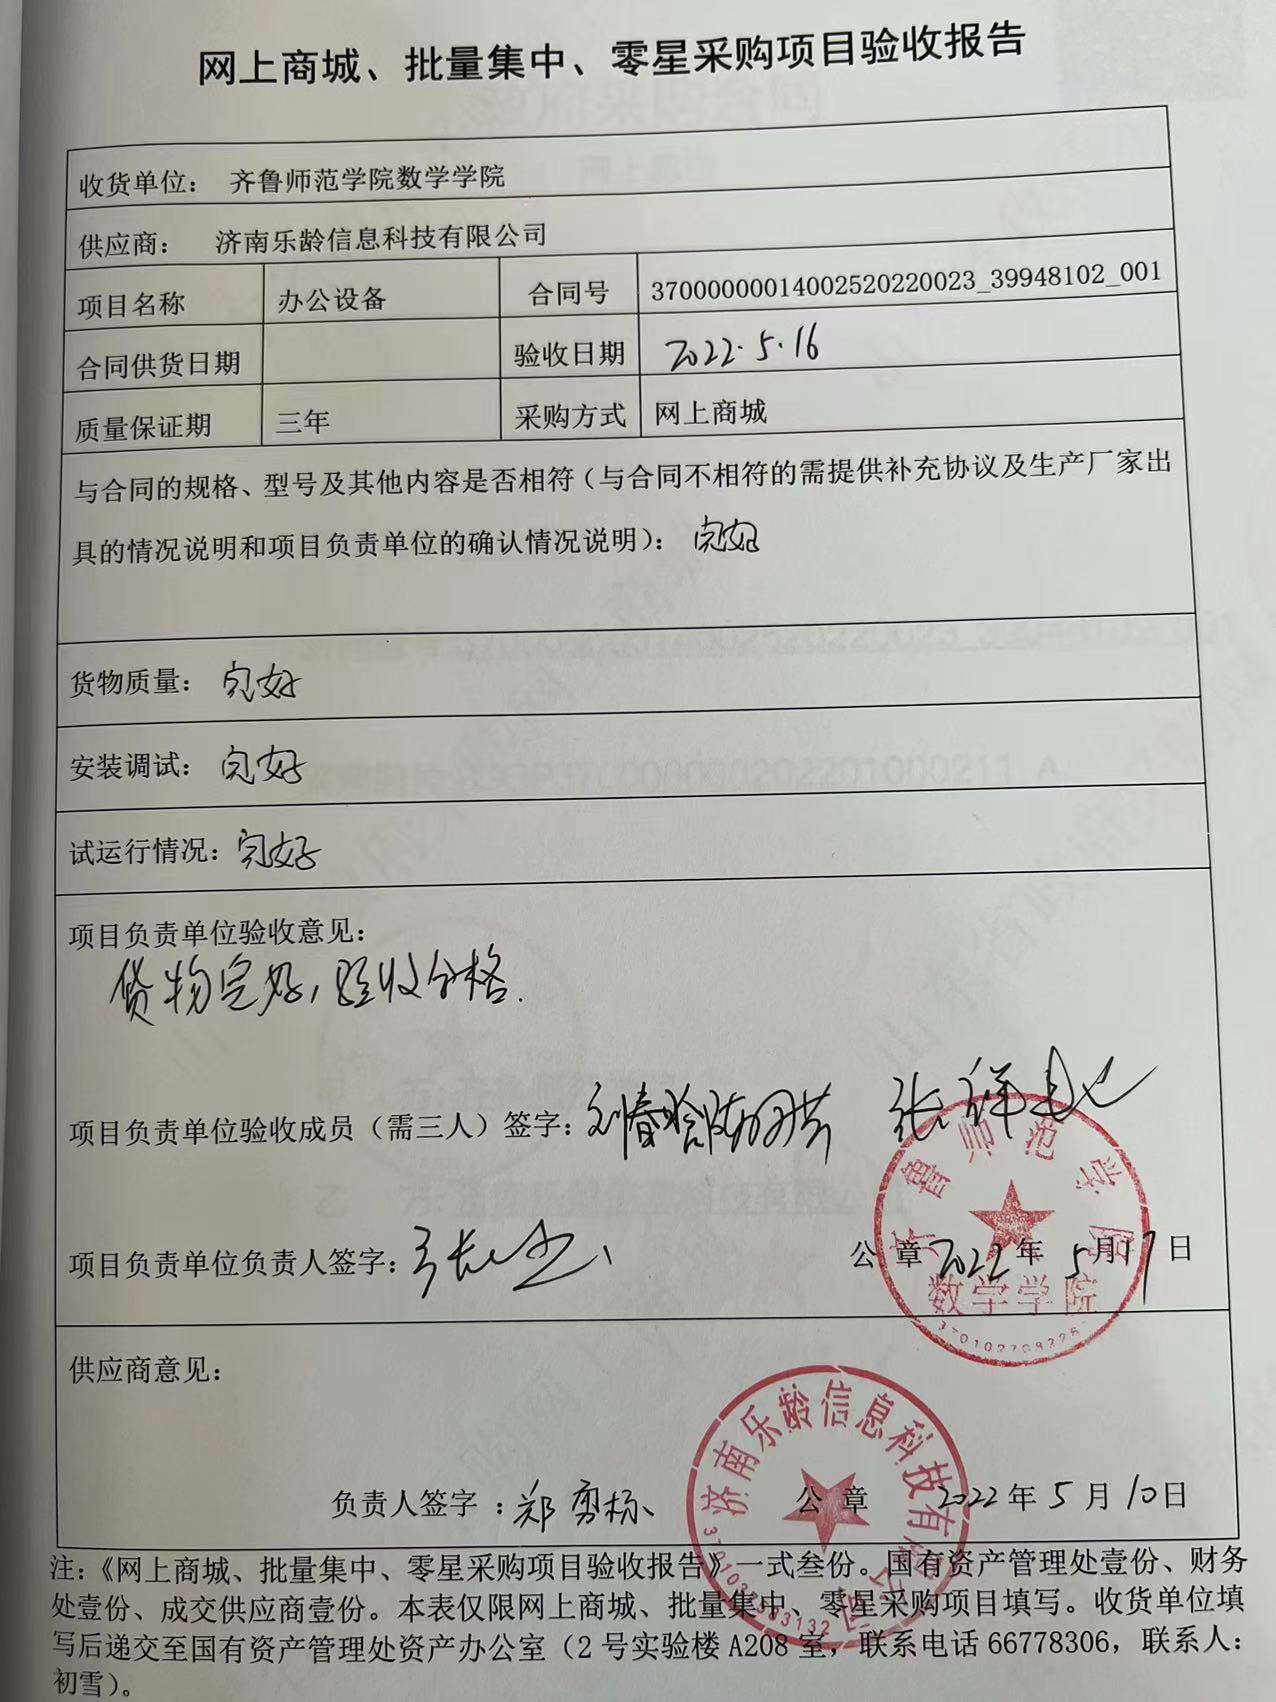 网上商城、批量集中、零星采购项目验收报告
收货单位： 齐鲁师范学院数学学院
供应商： 济南乐龄信息科技有限公司
项目名称 办公设备 合同号 37000000014002520220023_39948102_001
合同供货日期 验收日期 2022.5.16
质量保证期 三年 采购方式 网上商城
与合同的规格、型号及其他内容是否相符（与合同不相符的需提供补充协议及生产厂家出
具的情况说明和项目负责单位的确认情况说明）： 完好
货物质量： 完好
安装调试： 完好
试运行情况：完好
项目负责单位验收意见：
货物完好，验收合格.
项目负责单位验收成员（需三人）签字：
齐鲁师范学院
项目负责单位负责人签字： 公 章 2022年 5月17日
数学学院
供应商意见：
济南乐龄信息科技有限公司
负责人签字 ：郑 公 章 2022年 5 月 10日
注：《网上商城、批量集中、零星采购项目验收报告》一式叁份。国有资产管理处壹份、财务
处壹份、成交供应商壹份。本表仅限网上商城、批量集中、零星采购项目填写。收货单位填
写后递交至国有资产管理处资产办公室（2 号实验楼 A208 室，联系电话 66778306，联系人：
初雪）。